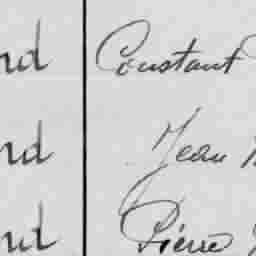 nd Constant
nd Jean
nd Pierre